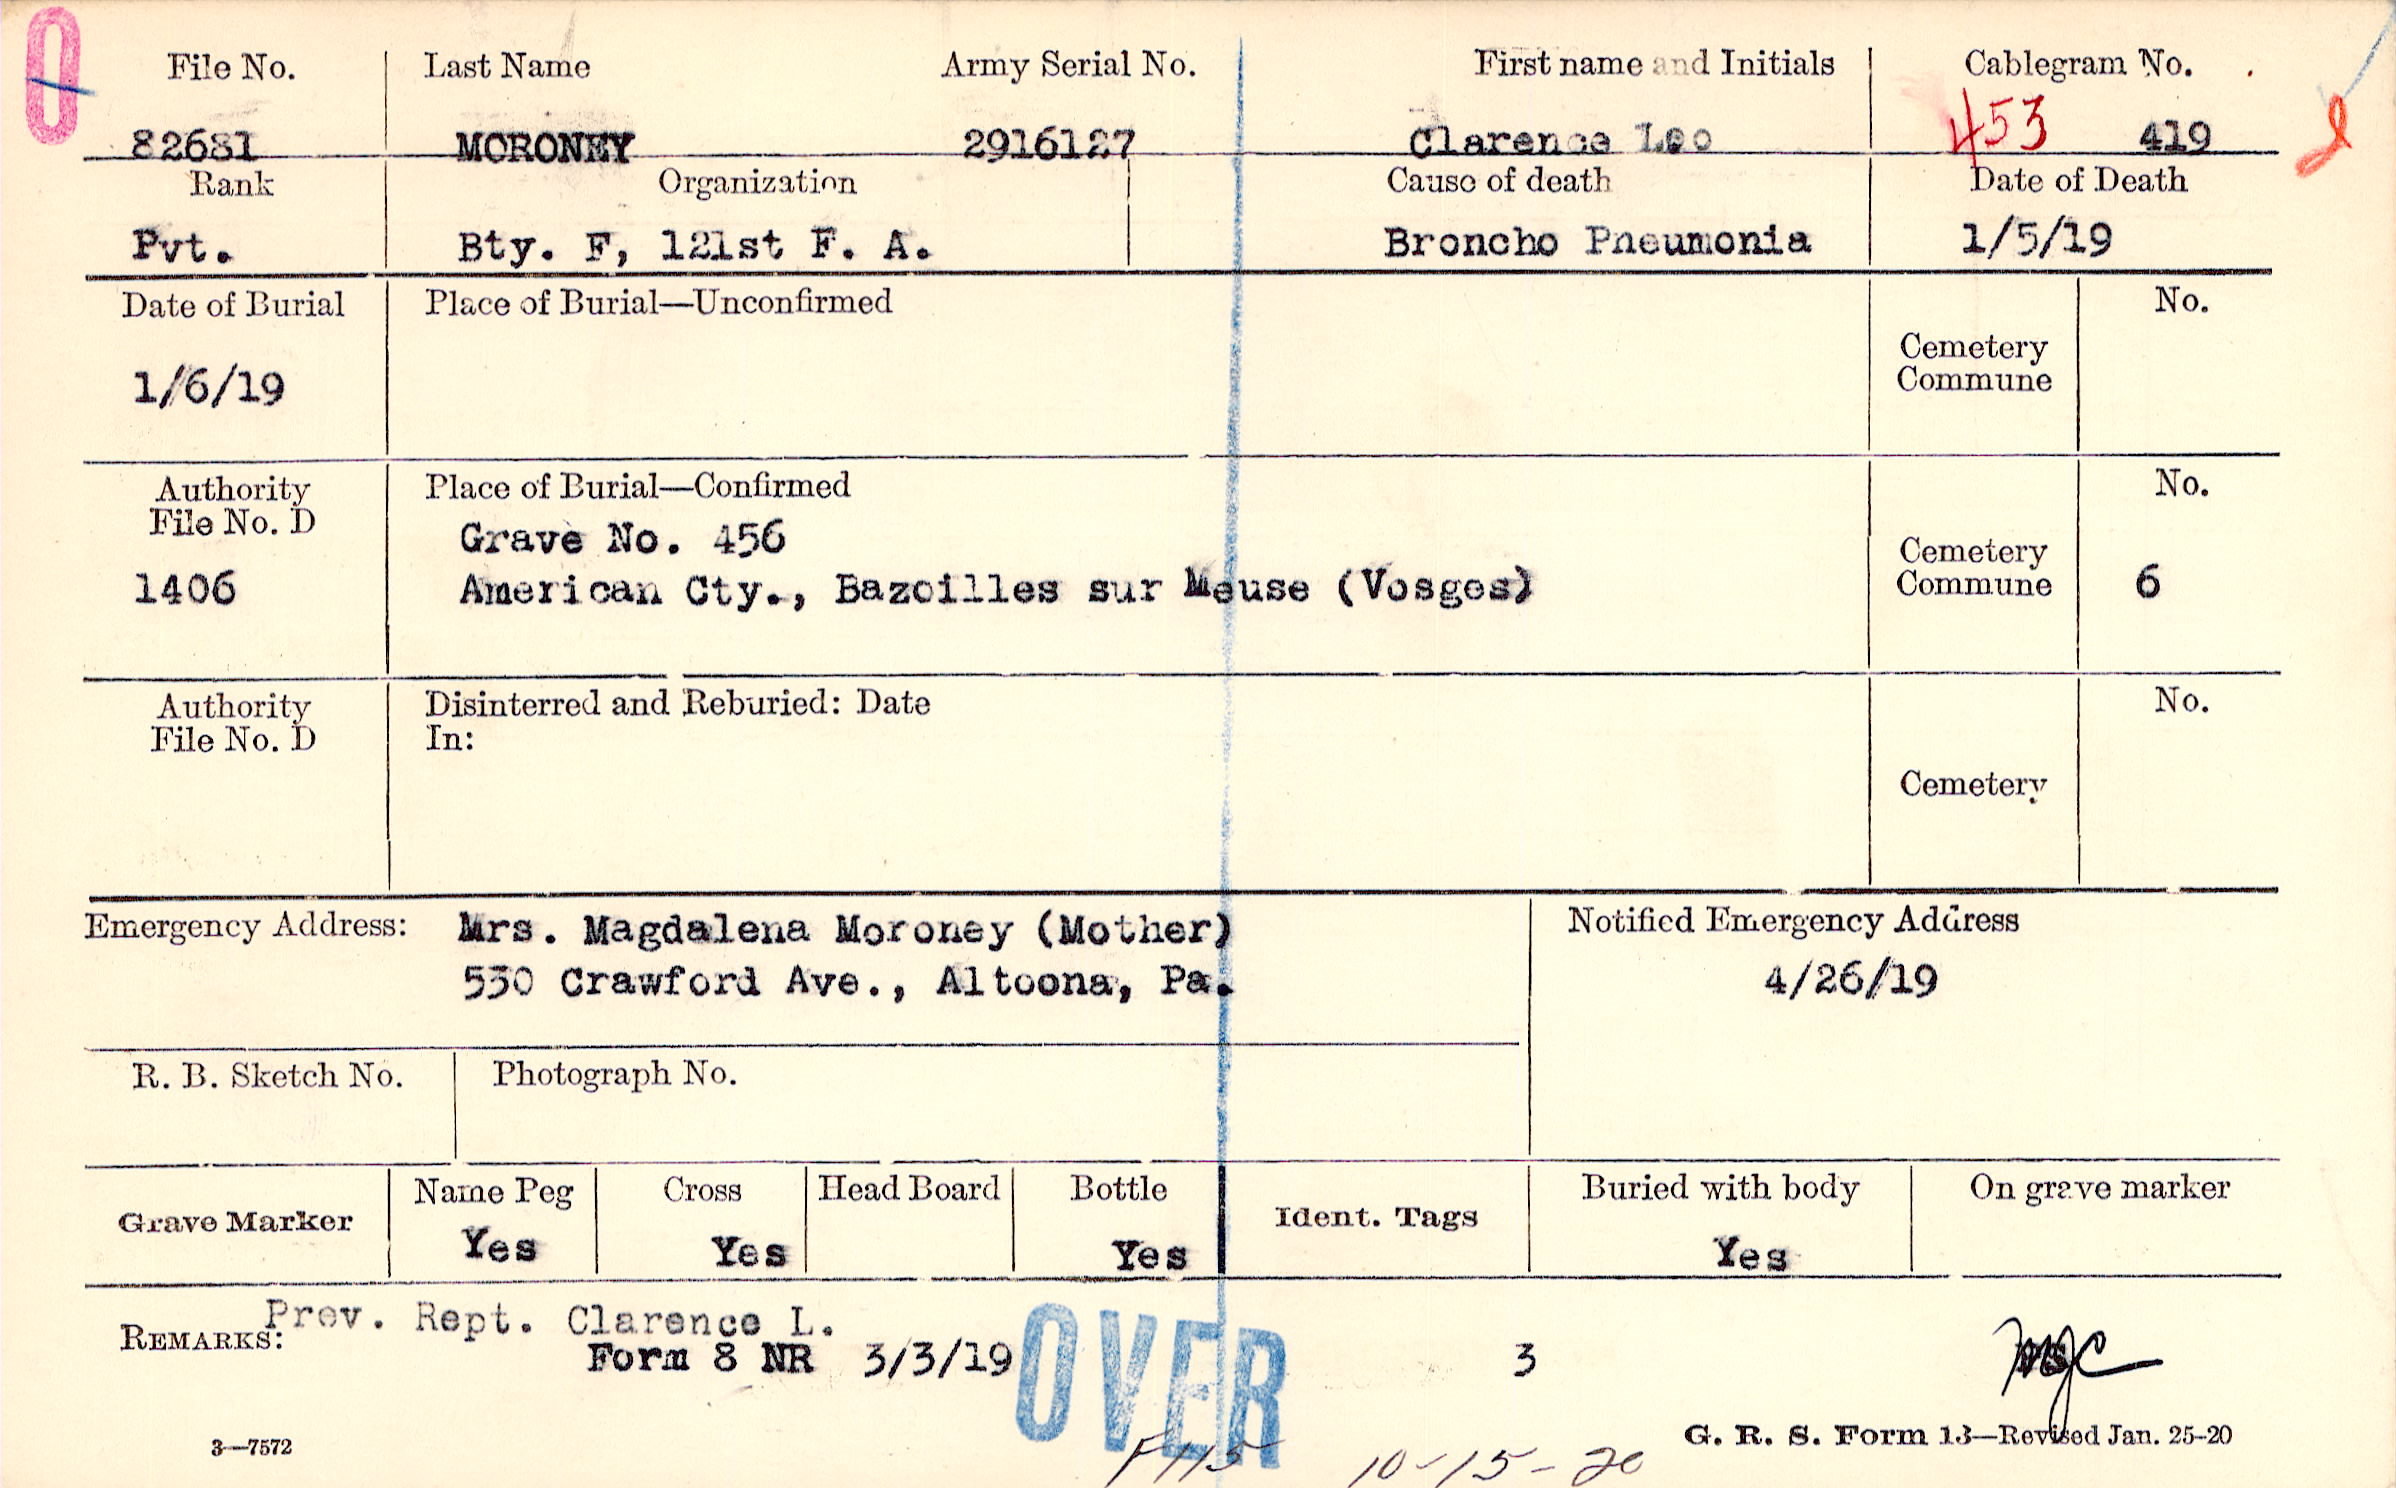 0
File No. Last Name Army Serial No. First name and Initials Cablegram No.
82681 MORONEY 2916127 Clarence Leo 453 419 2
Rank Organization Cause of death Date of Death
Pvt. Bty. F, 121st F. A. Broncho Pneumonia 1/5/19
Date of Burial Place of Burial—Unconfirmed No.
1/6/19 Cemetery
Commune
Authority Place of Burial—Confirmed No.
File No. D Grave No. 456
1406 American Cty., Bazoilles sur Meuse (Vosges) Cemetery
Commune 6
Authority Disinterred and Reburied: Date No.
File No. D In:
Cemetery
Emergency Address: Mrs. Magdalena Moroney (Mother) Notified Emergency Address
530 Crawford Ave., Altoona, Pa. 4/26/19
R. B. Sketch No. Photograph No.
Grave Marker Name Peg Cross Head Board Bottle Ident. Tags Buried with body On grave marker
Yes Yes Yes Yes
REMARKS: Prev. Rept. Clarence L.
Form 8 NR 3/3/19 3
OVER
3—7572 G. R. S. Form 13—Revised Jan. 25-20
F115 10-15-20